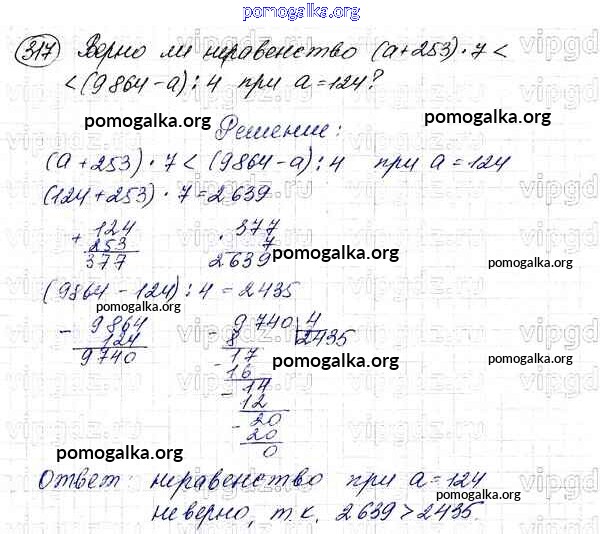 pomogalka.org
317 Верно ли неравенство (а+253)·7<
<(9864-а):4 при а=124?
pomogalka.org pomogalka.org
Решение:
(а+253)·7<(9864-а):4 при а=124
(124+253)·7=2639
+ 124 · 377
253 7
377 2639
pomogalka.org pomogalka.org
(9864-124):4=2435
pomogalka.org
- 9864 - 9740 4
124 8 2435
9740 - 17
16
pomogalka.org pomogalka.org
- 14
12
- 20
20
0
pomogalka.org
Ответ: неравенство при а=124
pomogalka.org
неверно, т.к. 2639>2435.